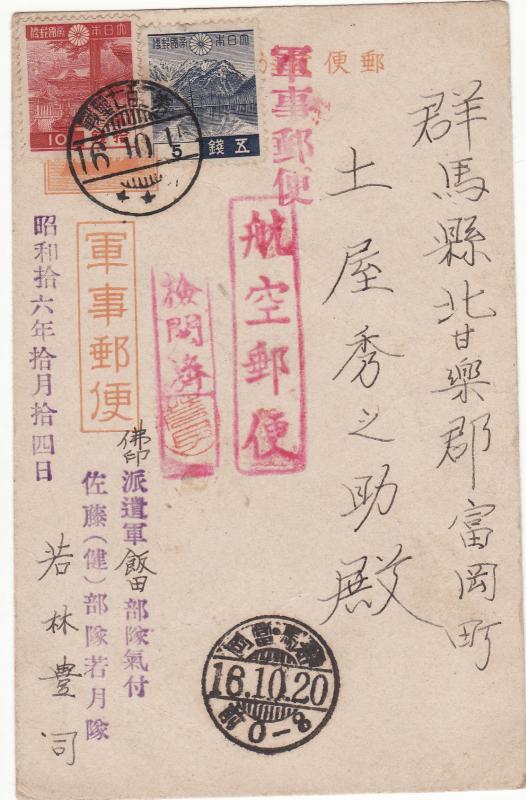 群馬縣北甘樂郡富岡町
土屋秀之助殿
郵便
軍事郵便
航空郵便
檢閲濟
大日本帝國郵便
五錢
大日本帝國郵便
10
16.10.15
軍事郵便
佛印派遣軍飯田部隊氣付
佐藤(健)部隊若月隊
若林豊司
昭和拾六年拾月拾四日
群馬・富岡
16.10.20
前0-8